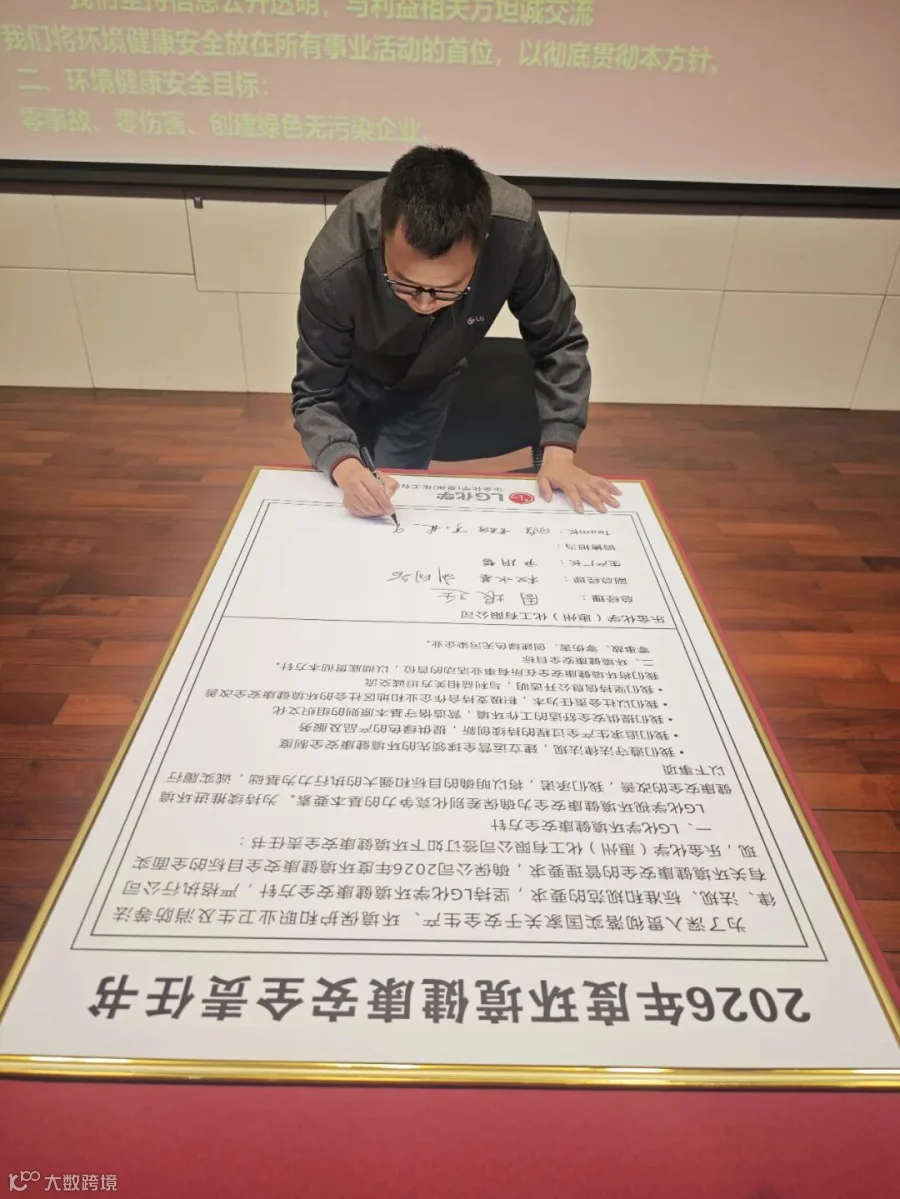 我们坚持信息公开透明，与利益相关方坦诚交流
我们将环境健康安全放在所有事业活动的首位，以彻底贯彻本方针。
二、环境健康安全目标：
零事故、零伤害、创建绿色无污染企业
LG
2026年度环境健康安全责任书
为了深入贯彻落实国家关于安全生产、环境保护和职业卫生及消防等法
律、法规、标准和规范的要求，坚持LG化学环境健康安全方针，严格执行公司
有关环境健康安全的管理要求，确保公司2026年度环境健康安全目标的全面实
现，乐金化学（惠州）化工有限公司签订如下环境健康安全责任书：
一、LG化学环境健康安全方针
LG化学视环境健康安全为确保差别化竞争力的基本要素。为持续推进环境
健康安全的改善，我们承诺，将以明确的目标和强大的执行力为基础，诚实履行
以下事项
• 我们遵守法律法规，建立运营全球领先的环境健康安全制度
• 我们追求生产全过程的持续创新，提供绿色的产品及服务
• 我们提供安全舒适的工作环境，营造恪守基本原则的组织文化
• 我们以社会责任为本，积极支持合作企业和地区社会的环境健康安全改善
• 我们坚持信息公开透明，与利益相关方坦诚交流
我们将环境健康安全放在所有事业活动的首位，以彻底贯彻本方针。
二、环境健康安全目标
零事故、零伤害、创建绿色无污染企业。
乐金化学（惠州）化工有限公司
总经理：
副总经理：
生产厂长：
销售担当：
Team长：
LG化学
乐金化学(惠州)化工有
大数跨境